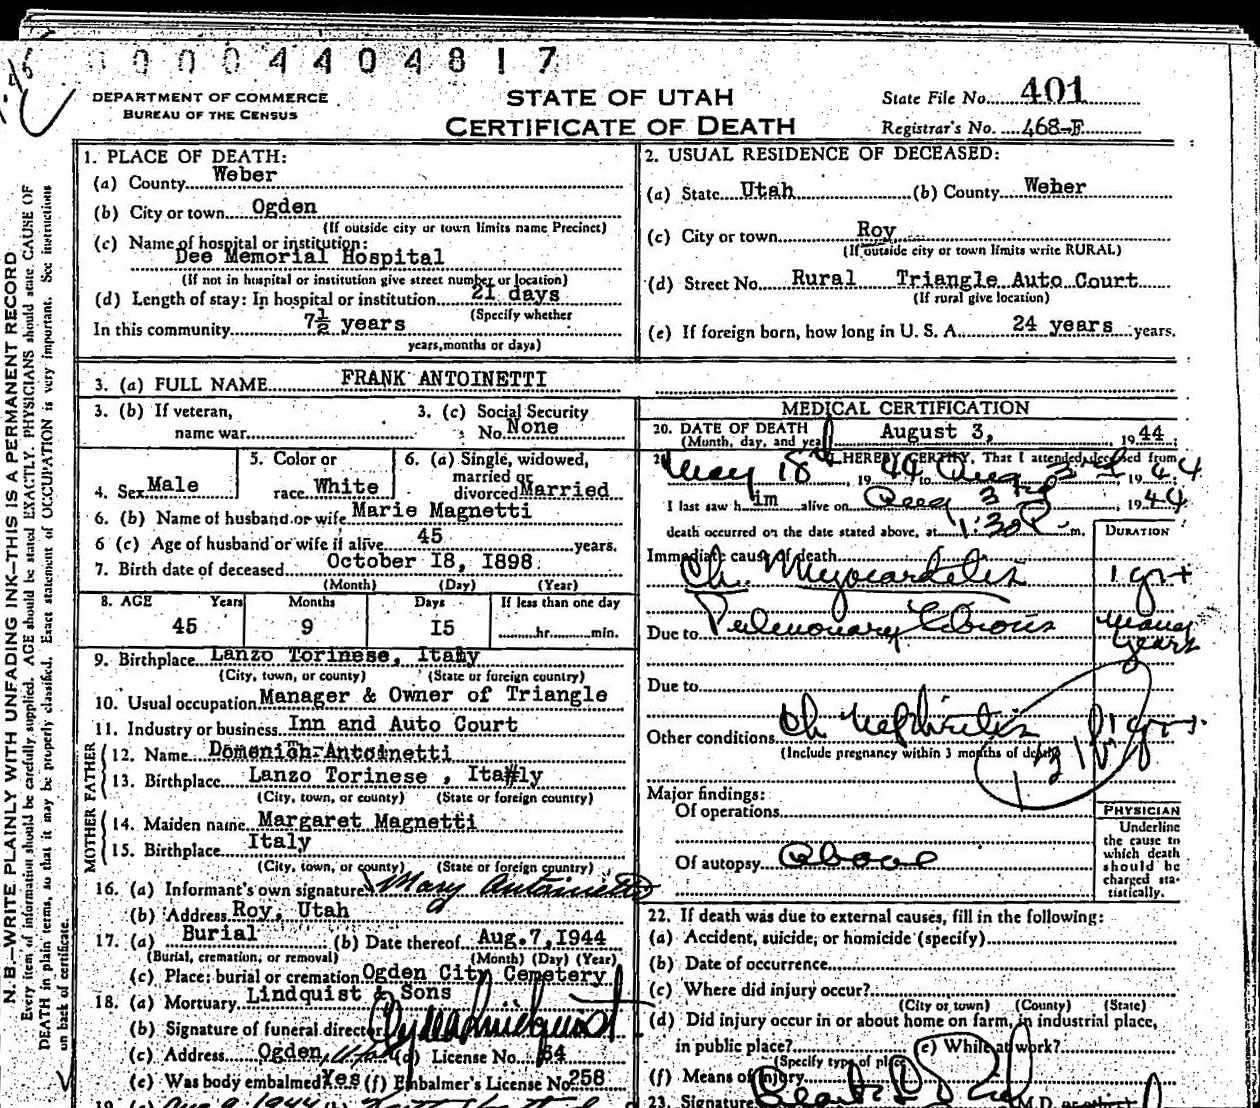 0 0 0 0 4 4 0 4 8 1 7
DEPARTMENT OF COMMERCE
BUREAU OF THE CENSUS
STATE OF UTAH
CERTIFICATE OF DEATH
State File No. 401
Registrar's No. 468-F
N. B.—WRITE PLAINLY WITH UNFADING INK—THIS IS A PERMANENT RECORD
Every item of information should be carefully supplied. AGE should be stated EXACTLY. PHYSICIANS should state CAUSE OF
DEATH in plain terms, so that it may be properly classified. Exact statement of OCCUPATION is very important. See instructions
on back of certificate.
1. PLACE OF DEATH:
(a) County Weber
(b) City or town Ogden
(If outside city or town limits name Precinct)
(c) Name of hospital or institution:
Dee Memorial Hospital
(If not in hospital or institution give street number or location)
(d) Length of stay: In hospital or institution 21 days
(Specify whether
In this community 7½ years
years, months or days)
2. USUAL RESIDENCE OF DECEASED:
(a) State Utah (b) County Weber
(c) City or town Roy
(If outside city or town limits write RURAL)
(d) Street No. Rural Triangle Auto Court
(If rural give location)
(e) If foreign born, how long in U. S. A. 24 years years.
3. (a) FULL NAME FRANK ANTOINETTI
3. (b) If veteran,
name war
3. (c) Social Security
No. None
4. Sex Male
5. Color or
race White
6. (a) Single, widowed,
married or
divorced Married
6. (b) Name of husband or wife Marie Magnetti
6 (c) Age of husband or wife if alive 45 years.
7. Birth date of deceased October I8, I898
(Month) (Day) (Year)
8. AGE Years Months Days If less than one day
45 9 I5 hr. min.
9. Birthplace Lanzo Torinese, Italy
(City, town, or county) (State or foreign country)
10. Usual occupation Manager & Owner of Triangle
11. Industry or business Inn and Auto Court
FATHER
12. Name Domenich Antoinetti
13. Birthplace Lanzo Torinese , Italy
(City, town, or county) (State or foreign country)
MOTHER
14. Maiden name Margaret Magnetti
15. Birthplace Italy
(City, town, or county) (State or foreign country)
16. (a) Informant's own signature Mary Antoinetti
(b) Address Roy, Utah
17. (a) Burial (b) Date thereof Aug.7,I944
(Burial, cremation, or removal) (Month) (Day) (Year)
(c) Place: burial or cremation Ogden City Cemetery
18. (a) Mortuary Lindquist & Sons
(b) Signature of funeral director Clyde Lindquist
(c) Address Ogden, Utah (d) License No. 64
(e) Was body embalmed Yes (f) Embalmer's License No. 258
19. (a) Aug 9 1944 (b)
MEDICAL CERTIFICATION
20. DATE OF DEATH
(Month, day, and year) August 3, 1944
21. I HEREBY CERTIFY, That I attended deceased from
May 18th, 1944 to Aug 3rd, 1944
I last saw him alive on Aug 3rd, 1944
death occurred on the date stated above, at 1:30 P m.
DURATION
Immediate cause of death
Ch. Myocarditis 1 yr+
Due to Pulmonary fibrosis many years
Due to
Other conditions Ch Nephritis 1 yr+
(Include pregnancy within 3 months of death)
Major findings:
Of operations
Of autopsy Above
PHYSICIAN
Underline
the cause to
which death
should be
charged sta-
tistically.
22. If death was due to external causes, fill in the following:
(a) Accident, suicide, or homicide (specify)
(b) Date of occurrence
(c) Where did injury occur?
(City or town) (County) (State)
(d) Did injury occur in or about home on farm, in industrial place,
in public place? (e) While at work?
(Specify type of place)
(f) Means of injury
23. Signature M.D. or other